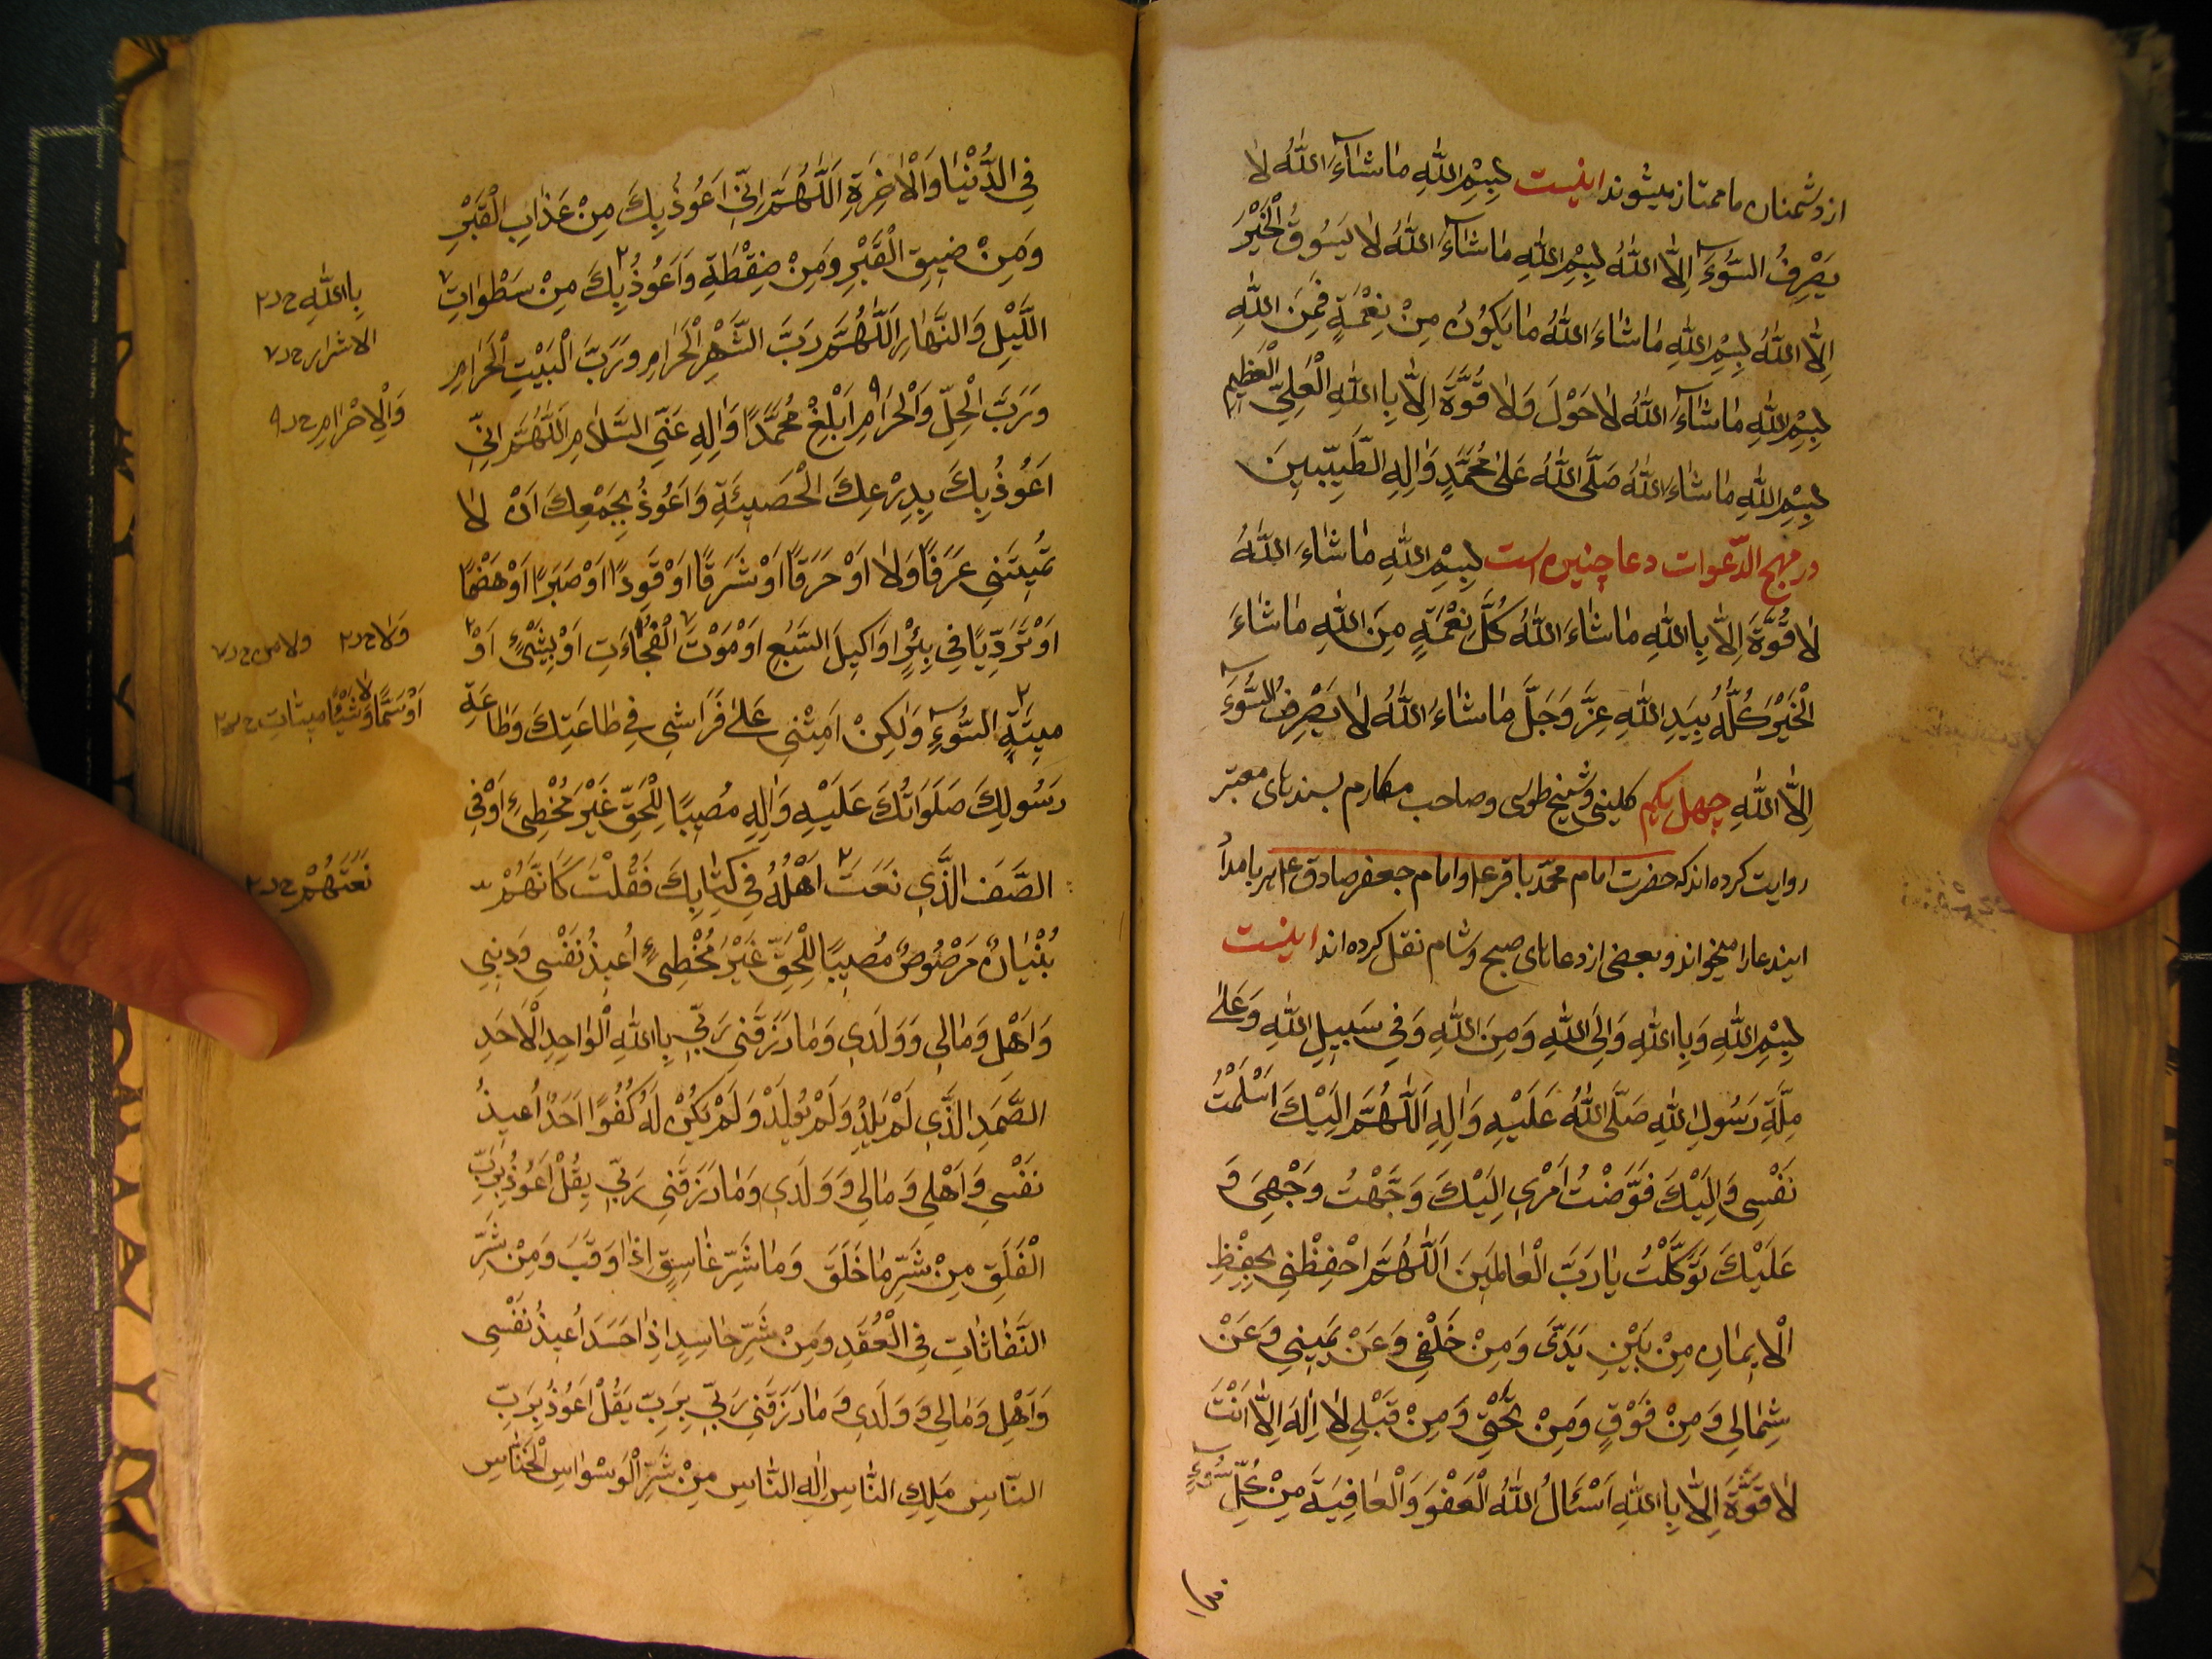 از دشمنان ما ممتاز میشوند اینست بِسْمِ اللّٰهِ مٰا شٰآءَ اللّٰهُ لٰا
یَصْرِفُ السُّوٓءَ اِلَّا اللّٰهُ بِسْمِ اللّٰهِ مٰا شٰآءَ اللّٰهُ لٰا یَسُوقُ الْخَیْرَ
اِلَّا اللّٰهُ بِسْمِ اللّٰهِ مٰا شٰاءَ اللّٰهُ مٰا یَکُونُ مِنْ نِعْمَةٍ فَمِنَ اللّٰهِ
بِسْمِ اللّٰهِ مٰا شٰآءَ اللّٰهُ لٰا حَوْلَ وَلٰا قُوَّةَ اِلّٰا بِاللّٰهِ الْعَلِیِّ الْعَظِیمِ
بِسْمِ اللّٰهِ مٰا شٰاءَ اللّٰهُ صَلَّی اللّٰهُ عَلیٰ مُحَمَّدٍ وَاٰلِهِ الطَّیِّبِینَ
در مهج الدّعوات دعا چنین است بِسْمِ اللّٰهِ مٰا شٰاءَ اللّٰهُ
لٰا قُوَّةَ اِلّٰا بِاللّٰهِ مٰا شٰاءَ اللّٰهُ کُلُّ نِعْمَةٍ مِنَ اللّٰهِ مٰا شٰاءَ
الْخَیْرُ کُلُّهُ بِیَدِ اللّٰهِ عَزَّ وَجَلَّ مٰا شٰاءَ اللّٰهُ لٰا یَصْرِفُ السُّوٓءَ
اِلَّا اللّٰهِ چهل یکم کلینی و شیخ طوسی و صاحب مکارم بسندهای معتبر
روایت کرده اند که حضرت امام محمّد باقر ع و امام جعفر صادق ع هر بامداد
ایندعا را میخواند و بعضی از دعاهای صبح و شام نقل کرده اند اینست
بِسْمِ اللّٰهِ وَبِاللّٰهِ وَاِلَی اللّٰهِ وَمِنَ اللّٰهِ وَفِی سَبِیلِ اللّٰهِ وَعَلیٰ
مِلَّةِ رَسُولِ اللّٰهِ صَلَّی اللّٰهُ عَلَیْهِ وَاٰلِهِ اَللّٰهُمَّ اِلَیْکَ اَسْلَمْتُ
نَفْسِی وَاِلَیْکَ فَوَّضْتُ اَمْرِی اِلَیْکَ وَجَّهْتُ وَجْهِیَ وَ
عَلَیْکَ تَوَکَّلْتُ یٰا رَبَّ الْعٰالَمِینَ اَللّٰهُمَّ احْفِظْنِی بِحِفْظِ
الْاِیمٰانِ مِنْ بَیْنِ یَدَیَّ وَمِنْ خَلْفِی وَعَنْ یَمِینِی وَعَنْ
شِمٰالِی وَمِنْ فَوْقِی وَمِنْ تَحْتِی وَمِنْ قِبَلِی لٰا اِلٰهَ اِلّٰا اَنْتَ
لٰا قُوَّةَ اِلّٰا بِاللّٰهِ اَسْئَالُ اللّٰهَ الْعَفْوَ وَالْعٰافِیَةَ مِنْ کُلِّ سُوٓءٍ
فِی الدُّنْیٰا وَالْاٰخِرَةِ اَللّٰهُمَّ اِنِّی اَعُوذُ بِکَ مِنْ عَذٰابِ الْقَبْرِ
وَمِنْ ضِیقِ الْقَبْرِ وَمِنْ ضَغْطَةِ وَاَعُوذُ بِکَ مِنْ سَطَوٰاتِ
بِاللّٰهِ
اللَّیْلِ وَالنَّهٰارِ اَللّٰهُمَّ رَبَّ الشَّهْرِ الْحَرٰامِ وَرَبَّ الْبَیْتِ الْحَرٰامِ
الاشرار
وَرَبَّ الْحِلِّ وَالْحَرٰامِ اَبْلِغْ مُحَمَّدًا وَاٰلِهِ عَنِّی السَّلٰامَ اَللّٰهُمَّ اِنِّی
وَالْاِحْرٰامِ
اَعُوذُ بِکَ بِدِرْعِکَ الْحَصِینَةِ وَاَعُوذُ بِجَمْعِکَ اَنْ لٰا
تُمِیتَنِی غَرَقًا وَلٰا اَوْ حَرَقًا اَوْ شَرَقًا اَوْ قَوَدًا اَوْ صَبْرًا اَوْ هَضْمًا
اَوْ تَرَدِّیًا فِی بِئْرٍ اَوْ اَکِیلَ السَّبُعِ اَوْ مَوْتَ الْفُجٰاءَتِ اَوْ بِشَیْءٍ اَوْ
وَلٰا ولا من
مِیتَةِ السُّوٓءِ وَلٰکِنْ اَمِتْنِی عَلیٰ فَرٰاشِی فِی طٰاعَتِکَ وَطٰاعَةِ
رَسُولِکَ صَلَوٰاتُکَ عَلَیْهِ وَاٰلِهِ مُصِیبًا لِلْحَقِّ غَیْرَ مُخْطِیءٍ اَوْ فِی
الصَّفِ الَّذِی نَعَتَ اَهْلَهُ فِی کِتٰابِکَ فَقُلْتَ کَاَنَّهُمْ
نَعَتَهُمْ
بُنْیٰانٌ مَرْصُوصٌ مُصِیبًا لِلْحَقِّ غَیْرَ مُخْطِیءٍ اُعِیذُ نَفْسِی وَدِینِی
وَاَهْلِ وَمٰالِی وَوَلَدِی وَمٰا رَزَقَنِی رَبِّی بِاللّٰهِ الْوٰاحِدِ الْاَحَدِ
الصَّمَدِ الَّذِی لَمْ یَلِدْ وَلَمْ یُولَدْ وَلَمْ یَکُنْ لَهُ کُفُوًا اَحَدٌ اُعِیذُ
نَفْسِی وَاَهْلِی وَمٰالِی وَوَلَدِی وَمٰا رَزَقَنِی رَبِّی بِقُلْ اَعُوذُ بِرَبِّ
الْفَلَقِ مِنْ شَرِّ مٰا خَلَقَ وَمٰا شَرِّ غٰاسِقٍ اِذٰا وَقَبَ وَمِنْ شَرِّ
النَّفّٰاثٰاتِ فِی الْعُقَدِ وَمِنْ شَرِّ حٰاسِدٍ اِذٰا حَسَدَ اُعِیذُ نَفْسِی
وَاَهْلِ وَمٰالِی وَوَلَدِی وَمٰا رَزَقَنِی رَبِّی بِرَبِّ یَقُلْ اَعُوذُ بِرَبِّ
النّٰاسِ مَلِکِ النّٰاسِ اِلٰهِ النّٰاسِ مِنْ شَرِّ الْوَسْوٰاسِ الْخَنّٰاسِ